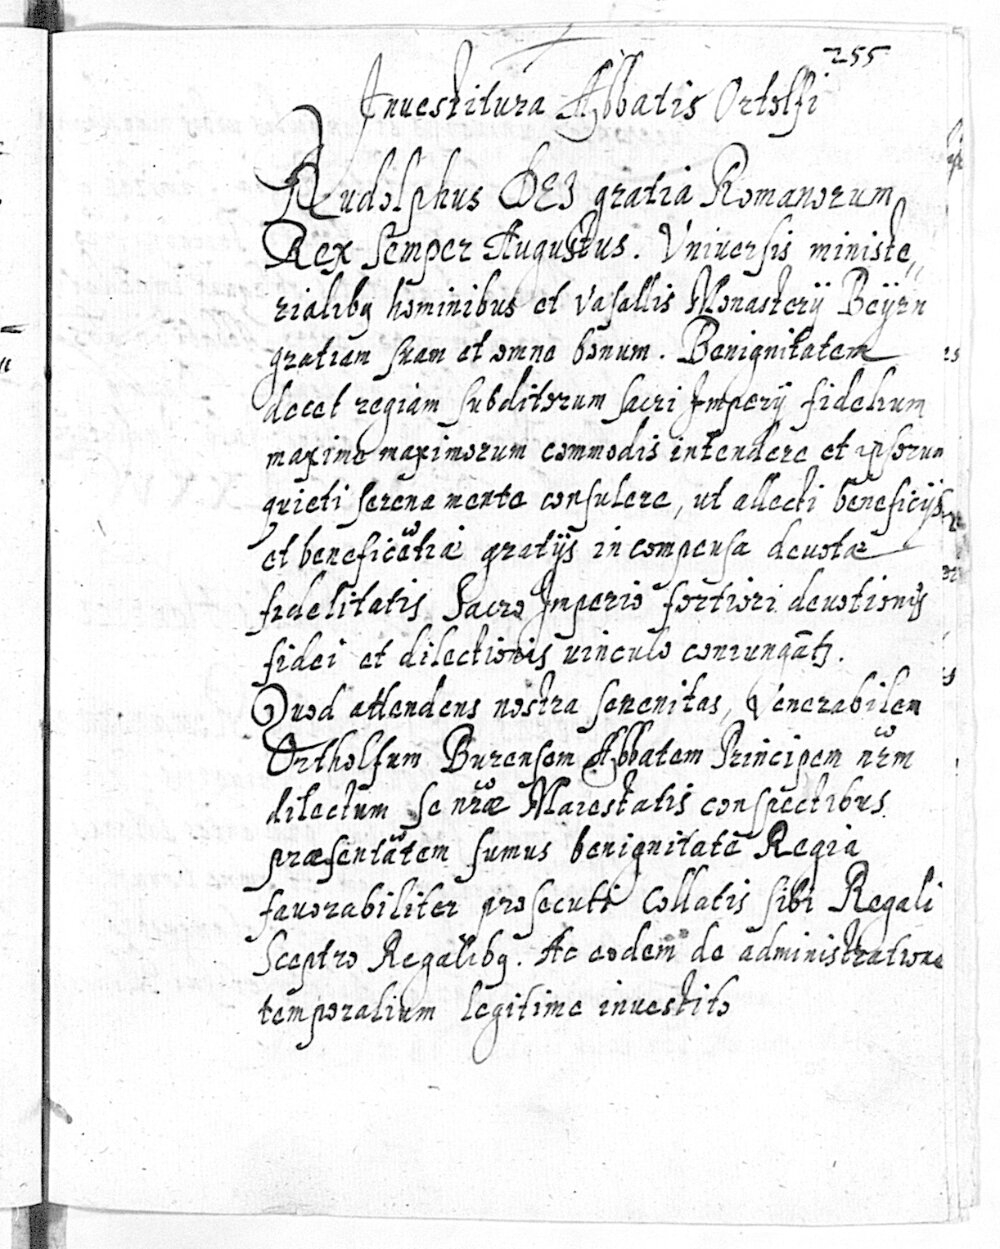 255
Investitura Abbatis Ortolfi
Rudolphus DEI gratia Romanorum
Rex semper Augustus. Vniuersis ministe„
rialibꝫ hominibus et Vasallis Monasterij Beÿrn
gratiam suam et omne bonum. Benignitatem
decet regiam subditorum sacri Imperij fidelium
maxime maximorum commodis intendere et ipsorum
quieti serena mente consulere, ut allecti beneficijs
et beneficātiæ gratijs in compensa deuotæ
fidelitatis Sacro Imperio fortiori deuotionis
fidei et dilectionis uinculo coniungāt᷑.
Quod attendens nostra serenitas, Venerabilem
Ortholfum Burensem Abbatem Principem nr̄m
dilectum se nr̄æ Maiestatis conspectibus
præsentātem sumus benignitate Regia
fauorabiliter prosecuti Collatis sibi Regali
Sceptro Regalibꝫ. Ac eodem de administratione
temporalium legitime inuestito